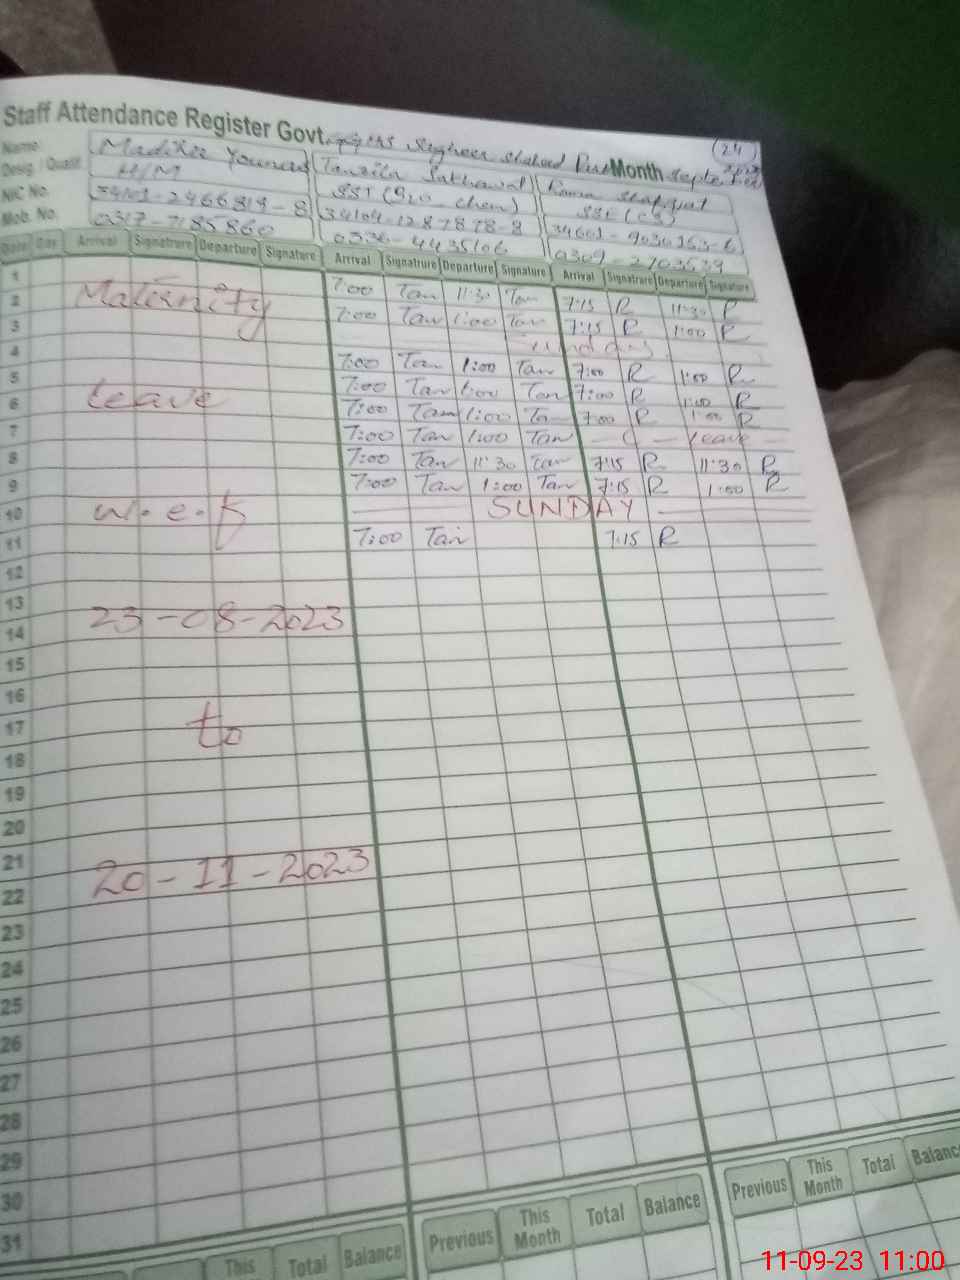 Staff Attendance Register Govt. Month Septe
(24)
Name: Madiha Younus Tanzila Sakhawat
Desig / Qualif: H/M SST (Bio_chem) SSE (CS)
NIC No. 34101-2466819-8 34104-1287878-8
Mob. No. 0317-7185860 0336-4435106 0309-2703539
Date Day Arrival Signatrure Departure Signature Arrival Signatrure Departure Signature Arrival Signatrure Departure Signature
1 7:00 Tan 11:30 Tan 7:15 R 11:30 R
2 Maternity 7:00 Tan 1:00 Tan 7:15 R 1:00 R
3 Sunday
4 7:00 Tan 1:00 Tan 7:00 R 1:00 R
5 7:00 Tan 1:00 Tan 7:00 R 1:00 R
6 Leave 7:00 Tan 1:00 Tan 7:00 R 1:00 R
7 7:00 Tan 1:00 Tan Leave
8 7:00 Tan 11:30 Tan 7:15 R 11:30 R
9 7:00 Tan 1:00 Tan 7:15 R 1:00 R
10 w.e.f SUNDAY
11 7:00 Tan 7:15 R
12
13
14 23-08-2023
15
16
17 to
18
19
20
21
22 20-11-2023
23
24
25
26
27
28
29
30
31
This Total Balance Previous This Month Total Balance Previous This Month Total Balance
11-09-23 11:00